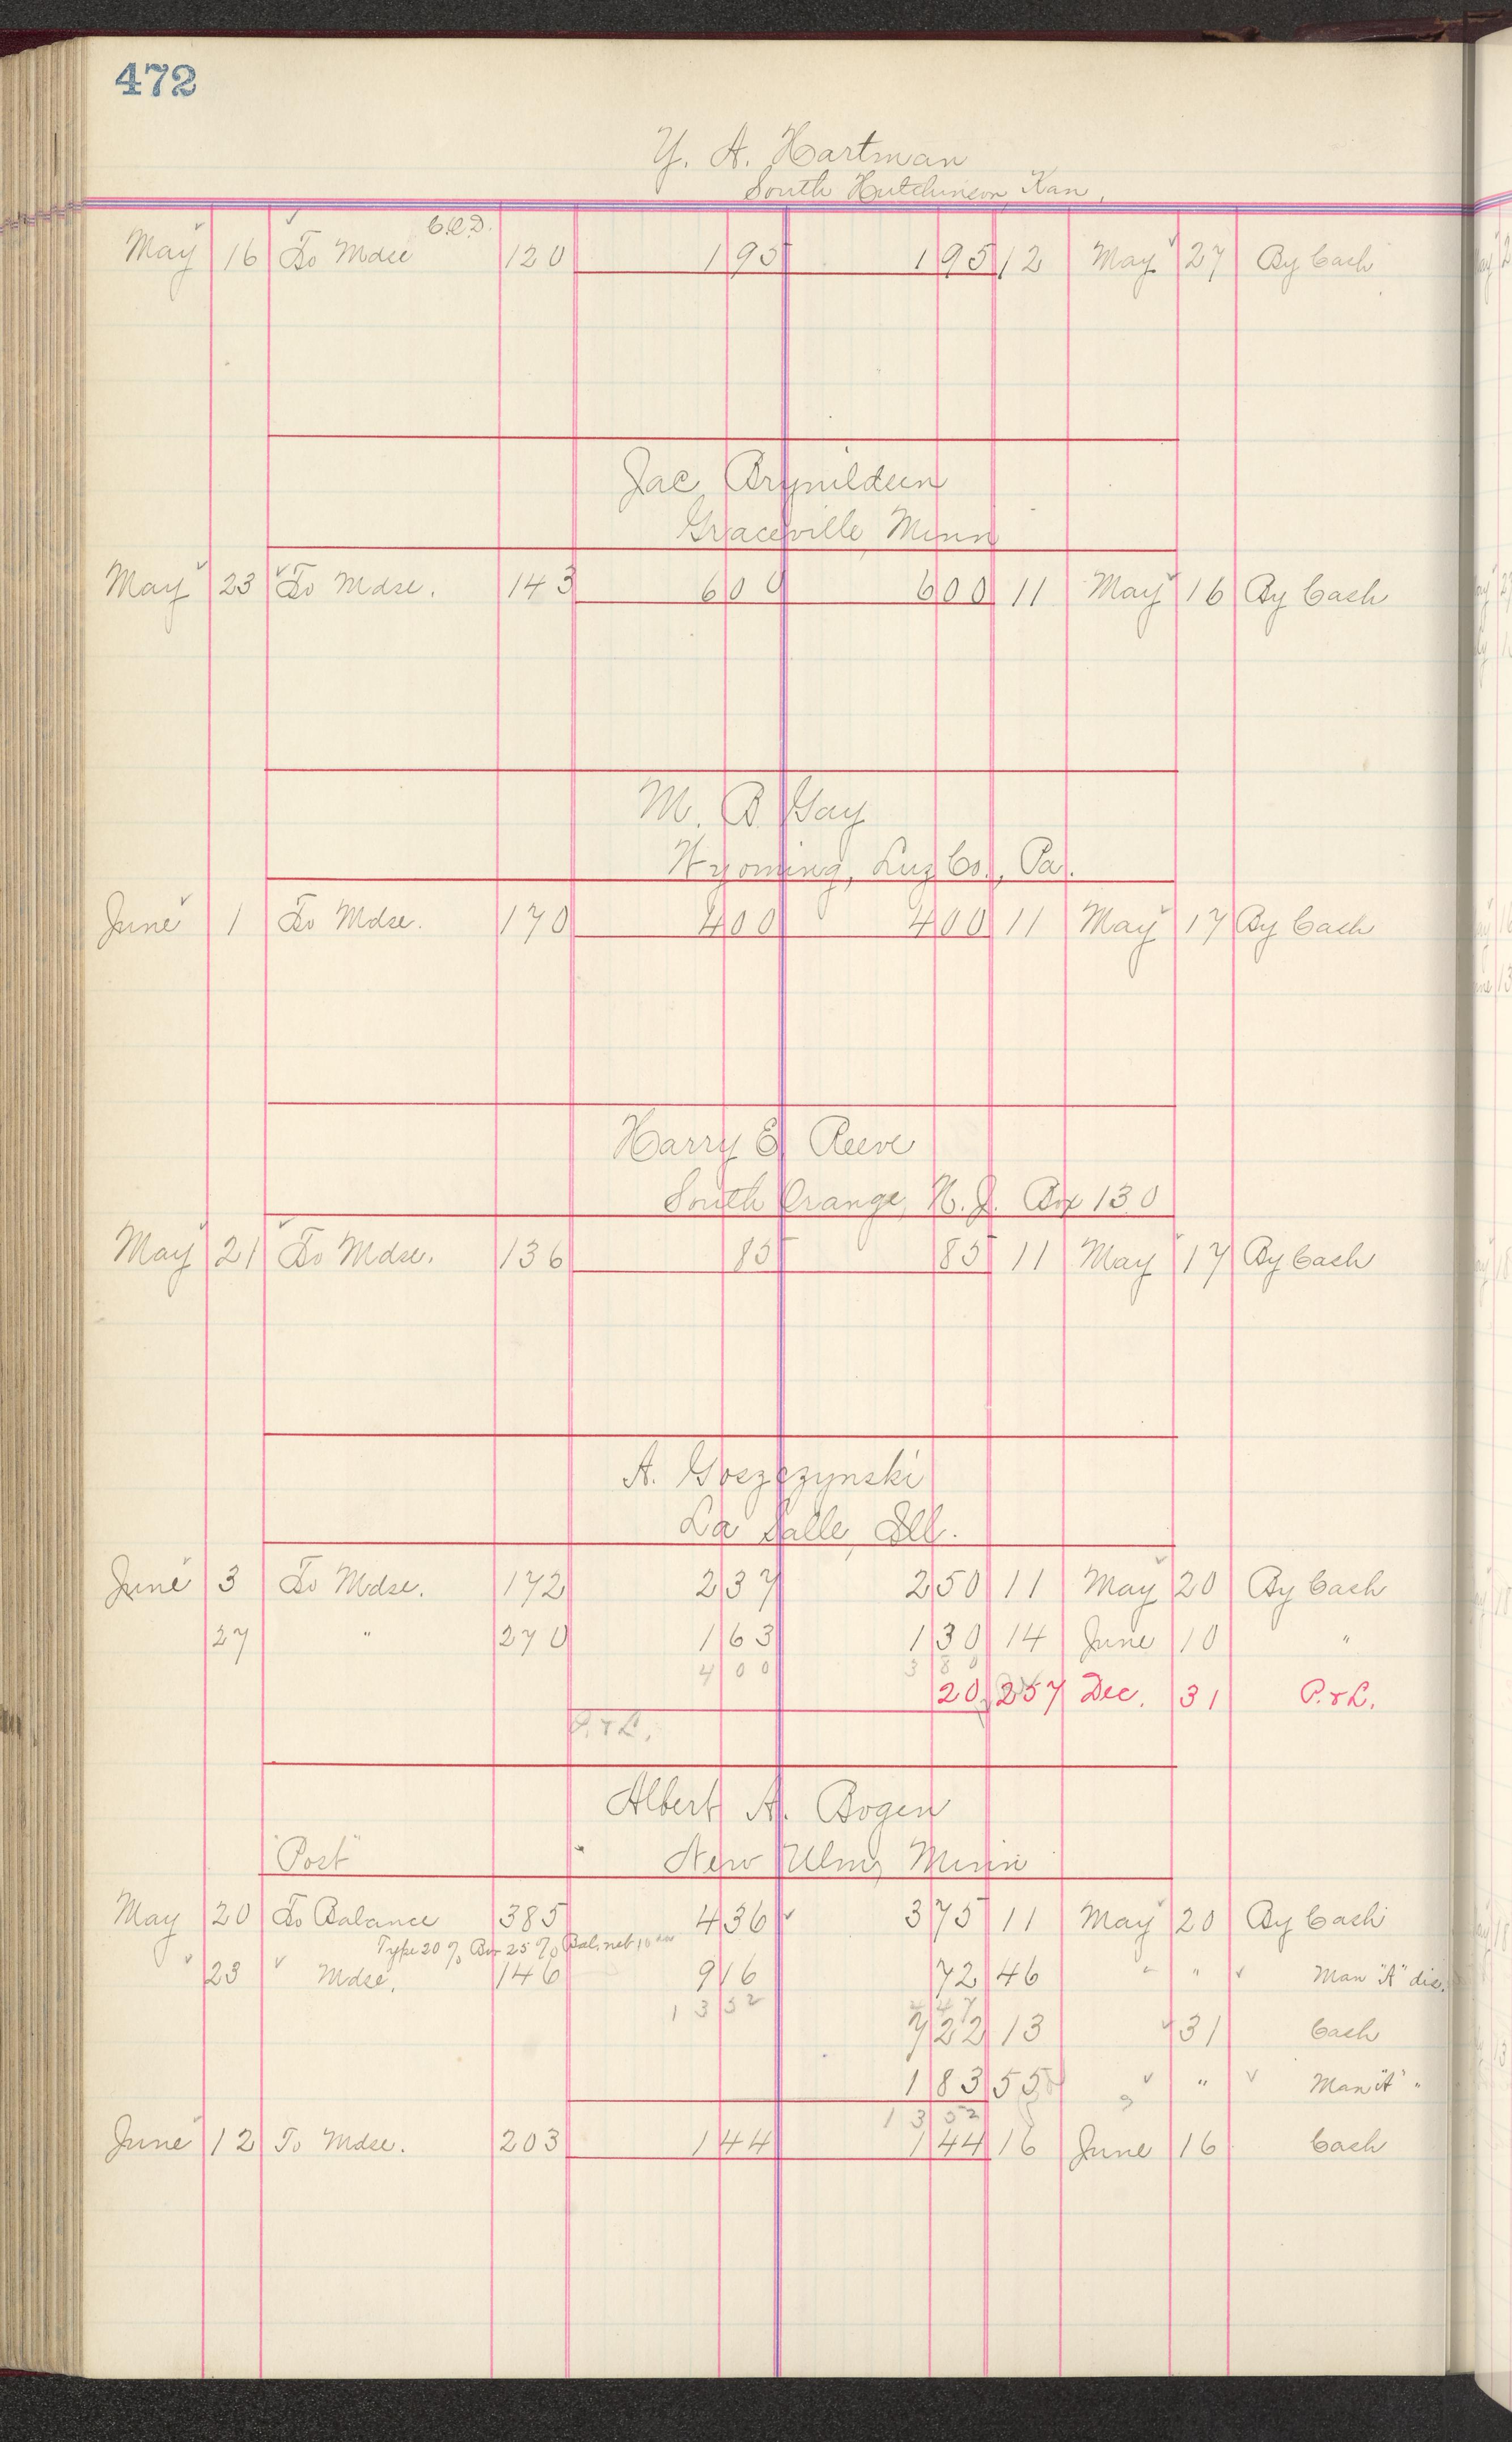 472
Y. A. Hartman
South Hutchinson, Kan.
C.O.D.
May 16 To Mdse 120 1 95 1 95 12 May 27 By Cash
Jac. Brynildsen
Graceville, Minn
May 23 To Mdse. 143 6 00 6 00 11 May 16 By Cash
M. B. Gay
Wyoming, Luz Co., Pa.
June 1 To Mdse. 170 4 00 4 00 11 May 17 By Cash
Harry E. Reeve
South Orange, N. J. Box 130
May 21 To Mdse. 136 85 85 11 May 17 By Cash
A. Goszczynski
La Salle, Ill.
June 3 To Mdse. 172 2 37 2 50 11 May 20 By Cash
27 " 270 1 63 1 30 14 June 10 "
4 00 3 80
20 257 Dec. 31 P. & L.
P. & L.
Albert A. Bogen
"Post" New Ulm, Minn
May 20 To Balance 385 4 36 3 75 11 May 20 By Cash
Type 20 % Bor 25 % Bal. net 10
23 Mdse. 146 9 16 72 46 " " Man "A" dis.
13 52 4 47
7 22 13 31 Cash
1 83 55 " " Man "A" "
13 52
June 12 To Mdse. 203 1 44 1 44 16 June 16 Cash